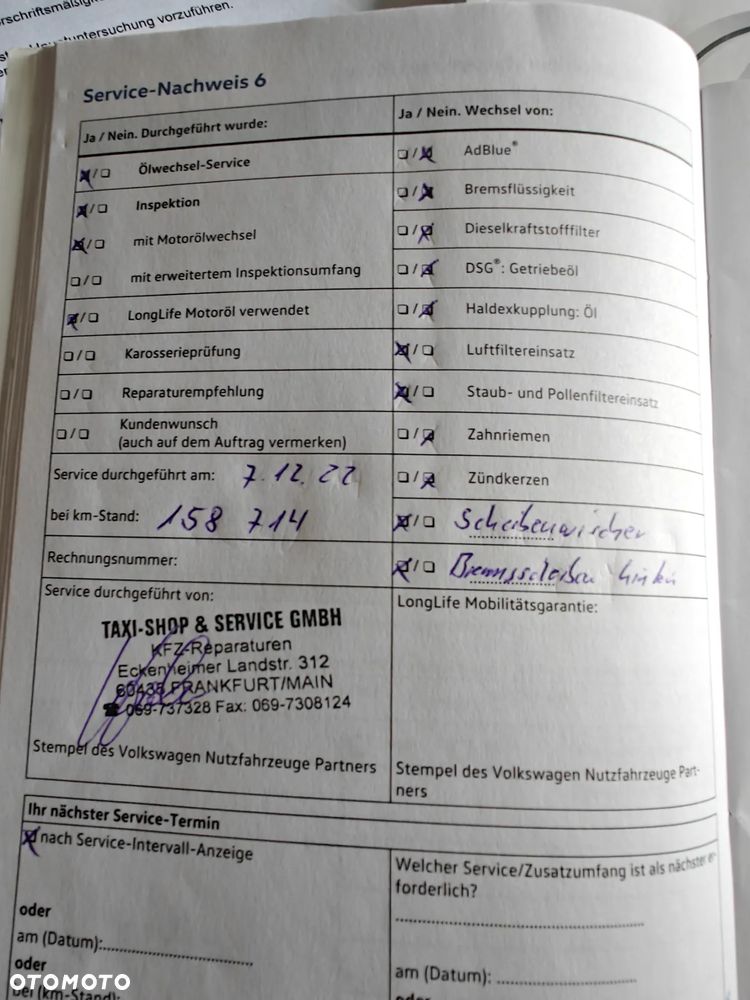 untersuchung vorzuführen.
Service-Nachweis 6
Ja / Nein. Durchgeführt wurde:
Ölwechsel-Service
Inspektion
mit Motorölwechsel
mit erweitertem Inspektionsumfang
LongLife Motoröl verwendet
Karosserieprüfung
Reparaturempfehlung
Kundenwunsch
(auch auf dem Auftrag vermerken)
Service durchgeführt am: 7.12.22
bei km-Stand: 158 714
Rechnungsnummer:
Service durchgeführt von:
TAXI-SHOP & SERVICE GMBH
KFZ-Reparaturen
Eckenheimer Landstr. 312
60435 FRANKFURT/MAIN
☎ 069-737328 Fax: 069-7308124
Stempel des Volkswagen Nutzfahrzeuge Partners
Ja / Nein. Wechsel von:
AdBlue®
Bremsflüssigkeit
Dieselkraftstofffilter
DSG®: Getriebeöl
Haldexkupplung: Öl
Luftfiltereinsatz
Staub- und Pollenfiltereinsatz
Zahnriemen
Zündkerzen
Scheibenwischer
Bremsscheiben hinten
LongLife Mobilitätsgarantie:
Stempel des Volkswagen Nutzfahrzeuge Part-
ners
Ihr nächster Service-Termin
nach Service-Intervall-Anzeige
oder
am (Datum):
oder
bei (km-Stand):
Welcher Service/Zusatzumfang ist als nächster er-
forderlich?
am (Datum):
oder
OTOMOTO